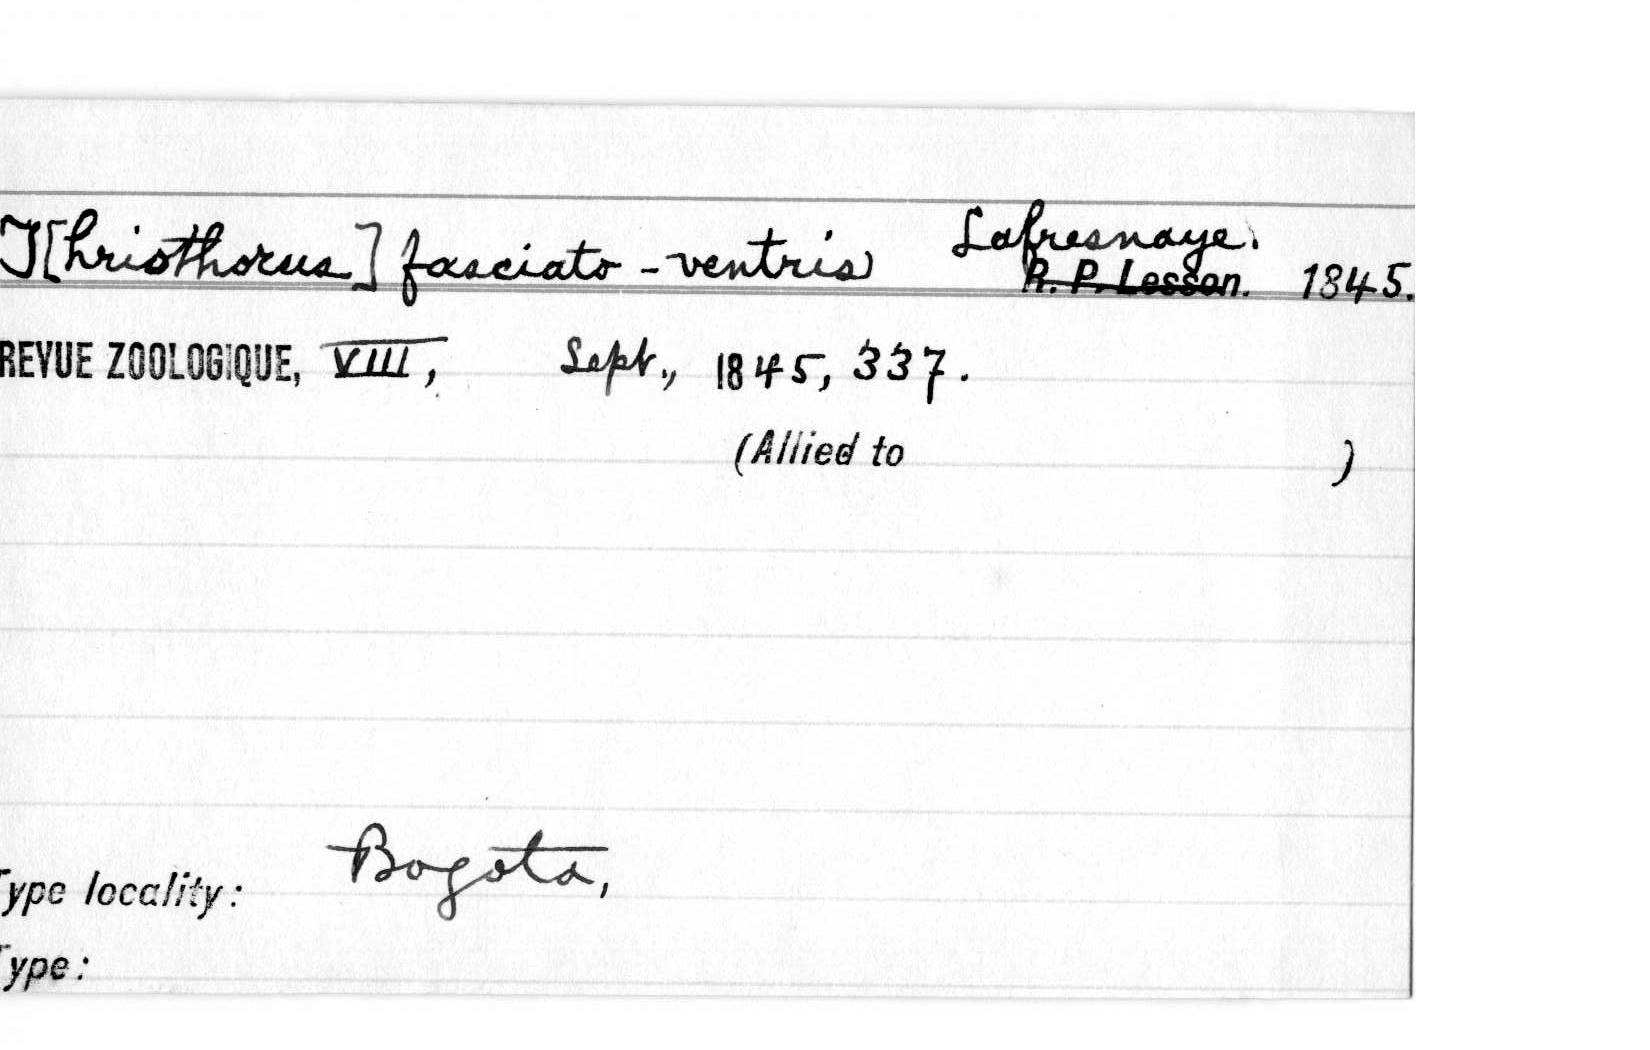 T[hriothorus] fasciato-ventris Lafresnaye.
R. P. Lesson. 1845.
REVUE ZOOLOGIQUE, VIII, Sept., 1845, 337.
(Allied to )
Type locality: Bogota,
Type: